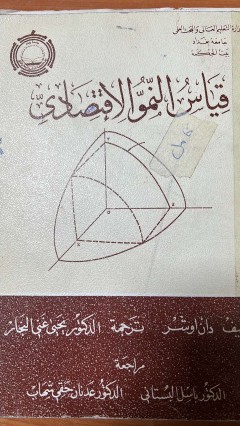 وزارة التعليم العالي والبحث العلمي
جامعة بغداد
بيت الحكمة
قياس النمو الاقتصادي
دان اوشر ترجمة الدكتور يحيى غني النجار
مراجعة
الدكتور باسل البستاني الدكتور عدنان حقي شهاب